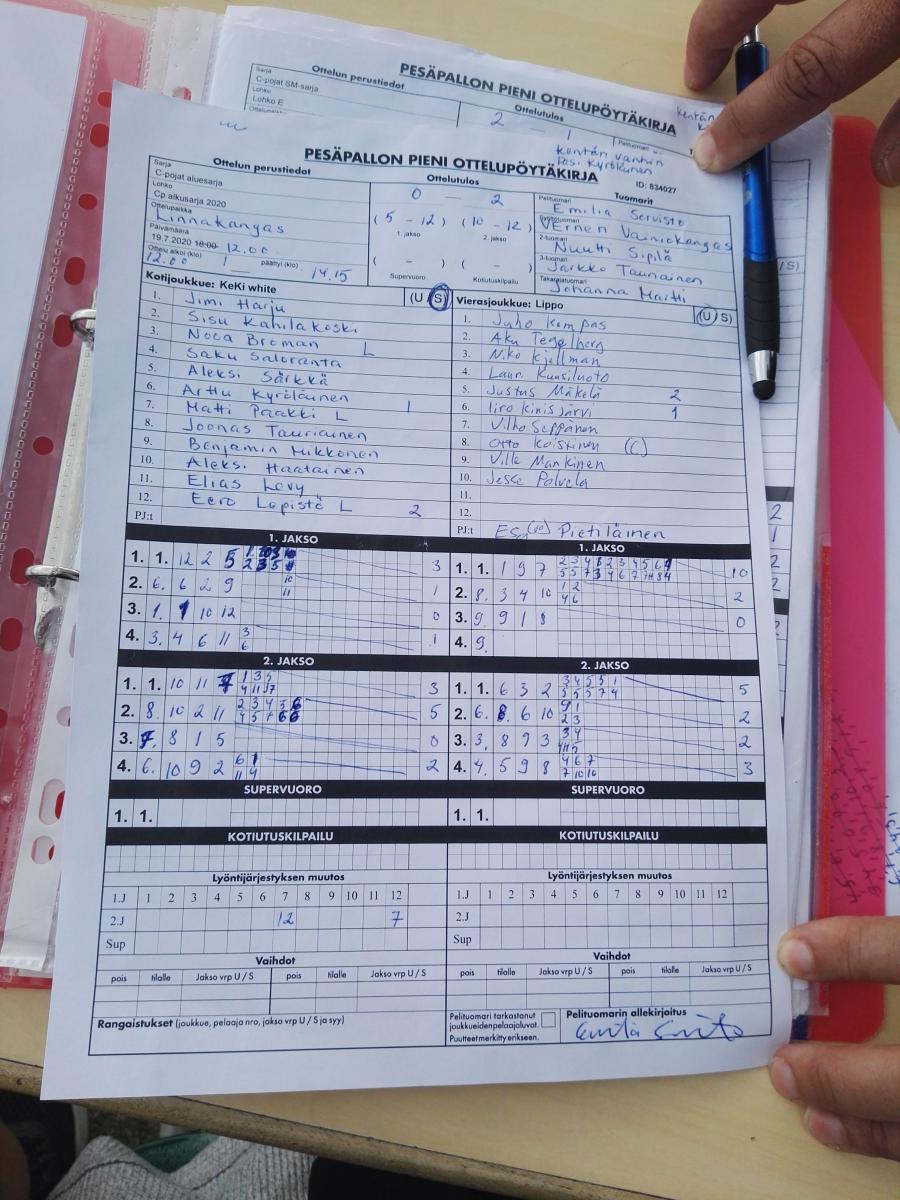 PESÄPALLON PIENI OTTELUPÖYTÄKIRJA
Sarja
Ottelun perustiedot
C-pojat SM-sarja
Lohko
Lohko E
Ottelutulos
2 – 1
Kentän vanhin
Pasi Kyröläinen
PESÄPALLON PIENI OTTELUPÖYTÄKIRJA
ID: 834027
Sarja
Ottelun perustiedot
C-pojat aluesarja
Lohko
Cp alkusarja 2020
Ottelupaikka
Linnakangas
Päivämäärä
19.7.2020 18:00 12.00
Ottelu alkoi (klo) päättyi (klo)
12.00 14.15
Ottelutulos
0 — 2
(5 - 12) (10 - 12)
1. jakso 2. jakso
( - ) ( - )
Supervuoro Kotiutuskilpailu
Tuomarit
Pelituomari
Emilia Servisto
Verneri Vainiokangas
2-tuomari
Nuutti Sipilä
3-tuomari
Jarkko Tauriainen
Takarajatuomari
Johanna Martti
Kotijoukkue: KeKi white (U S)
1. Jimi Harju
2. Sisu Kahilakoski
3. Nooa Broman L
4. Saku Saloranta
5. Aleksi Särkkä
6. Arttu Kyröläinen 1
7. Matti Paakki L
8. Joonas Tauriainen
9. Benjamin Mikkonen
10. Aleksi Haatainen
11. Elias Levy
12. Eero Lepistö L 2
PJ:t
Vierasjoukkue: Lippo (U S)
1. Juho Kempas
2. Aku Tegelberg
3. Niko Kjellman
4. Lauri Kuusiluoto
5. Justus Mäkelä 2
6. Iiro Kinisjärvi 1
7. Vilho Seppänen
8. Otto Koistinen (C)
9. Ville Mankinen
10. Jesse Polvela
11.
12.
PJ:t Esa Pietiläinen
1. JAKSO
1. 1. 12 2 5 3
2. 6. 6 2 9 10 11 1
3. 1. 1 10 12 0
4. 3. 4 6 11 3 6 1
2. JAKSO
1. 1. 10 11 7 3
2. 8. 10 2 11 5
3. 7. 8 1 5 0
4. 6. 10 9 2 2
SUPERVUORO
1. 1.
KOTIUTUSKILPAILU
Lyöntijärjestyksen muutos
1.J 1 2 3 4 5 6 7 8 9 10 11 12
2.J 12 7
Sup
Vaihdot
pois tilalle Jakso vrp U / S pois tilalle Jakso vrp U / S
Rangaistukset (joukkue, pelaaja nro, jakso vrp U / S ja syy)
1. JAKSO
1. 1. 1 9 7 10
2. 8. 3 4 10 1 2 4 6 2
3. 9. 9 1 8 0
4. 9.
2. JAKSO
1. 1. 6 3 2 5
2. 6. 8 6 10 2
3. 3. 8 9 3 2
4. 4. 5 9 8 4 6 7 7 10 10 3
SUPERVUORO
1. 1.
KOTIUTUSKILPAILU
Lyöntijärjestyksen muutos
1.J 1 2 3 4 5 6 7 8 9 10 11 12
2.J
Sup
Vaihdot
pois tilalle Jakso vrp U / S pois tilalle Jakso vrp U / S
Pelituomari tarkastanut
joukkueiden pelaajaluvat.
Puutteet merkitty erikseen.
Pelituomarin allekirjoitus